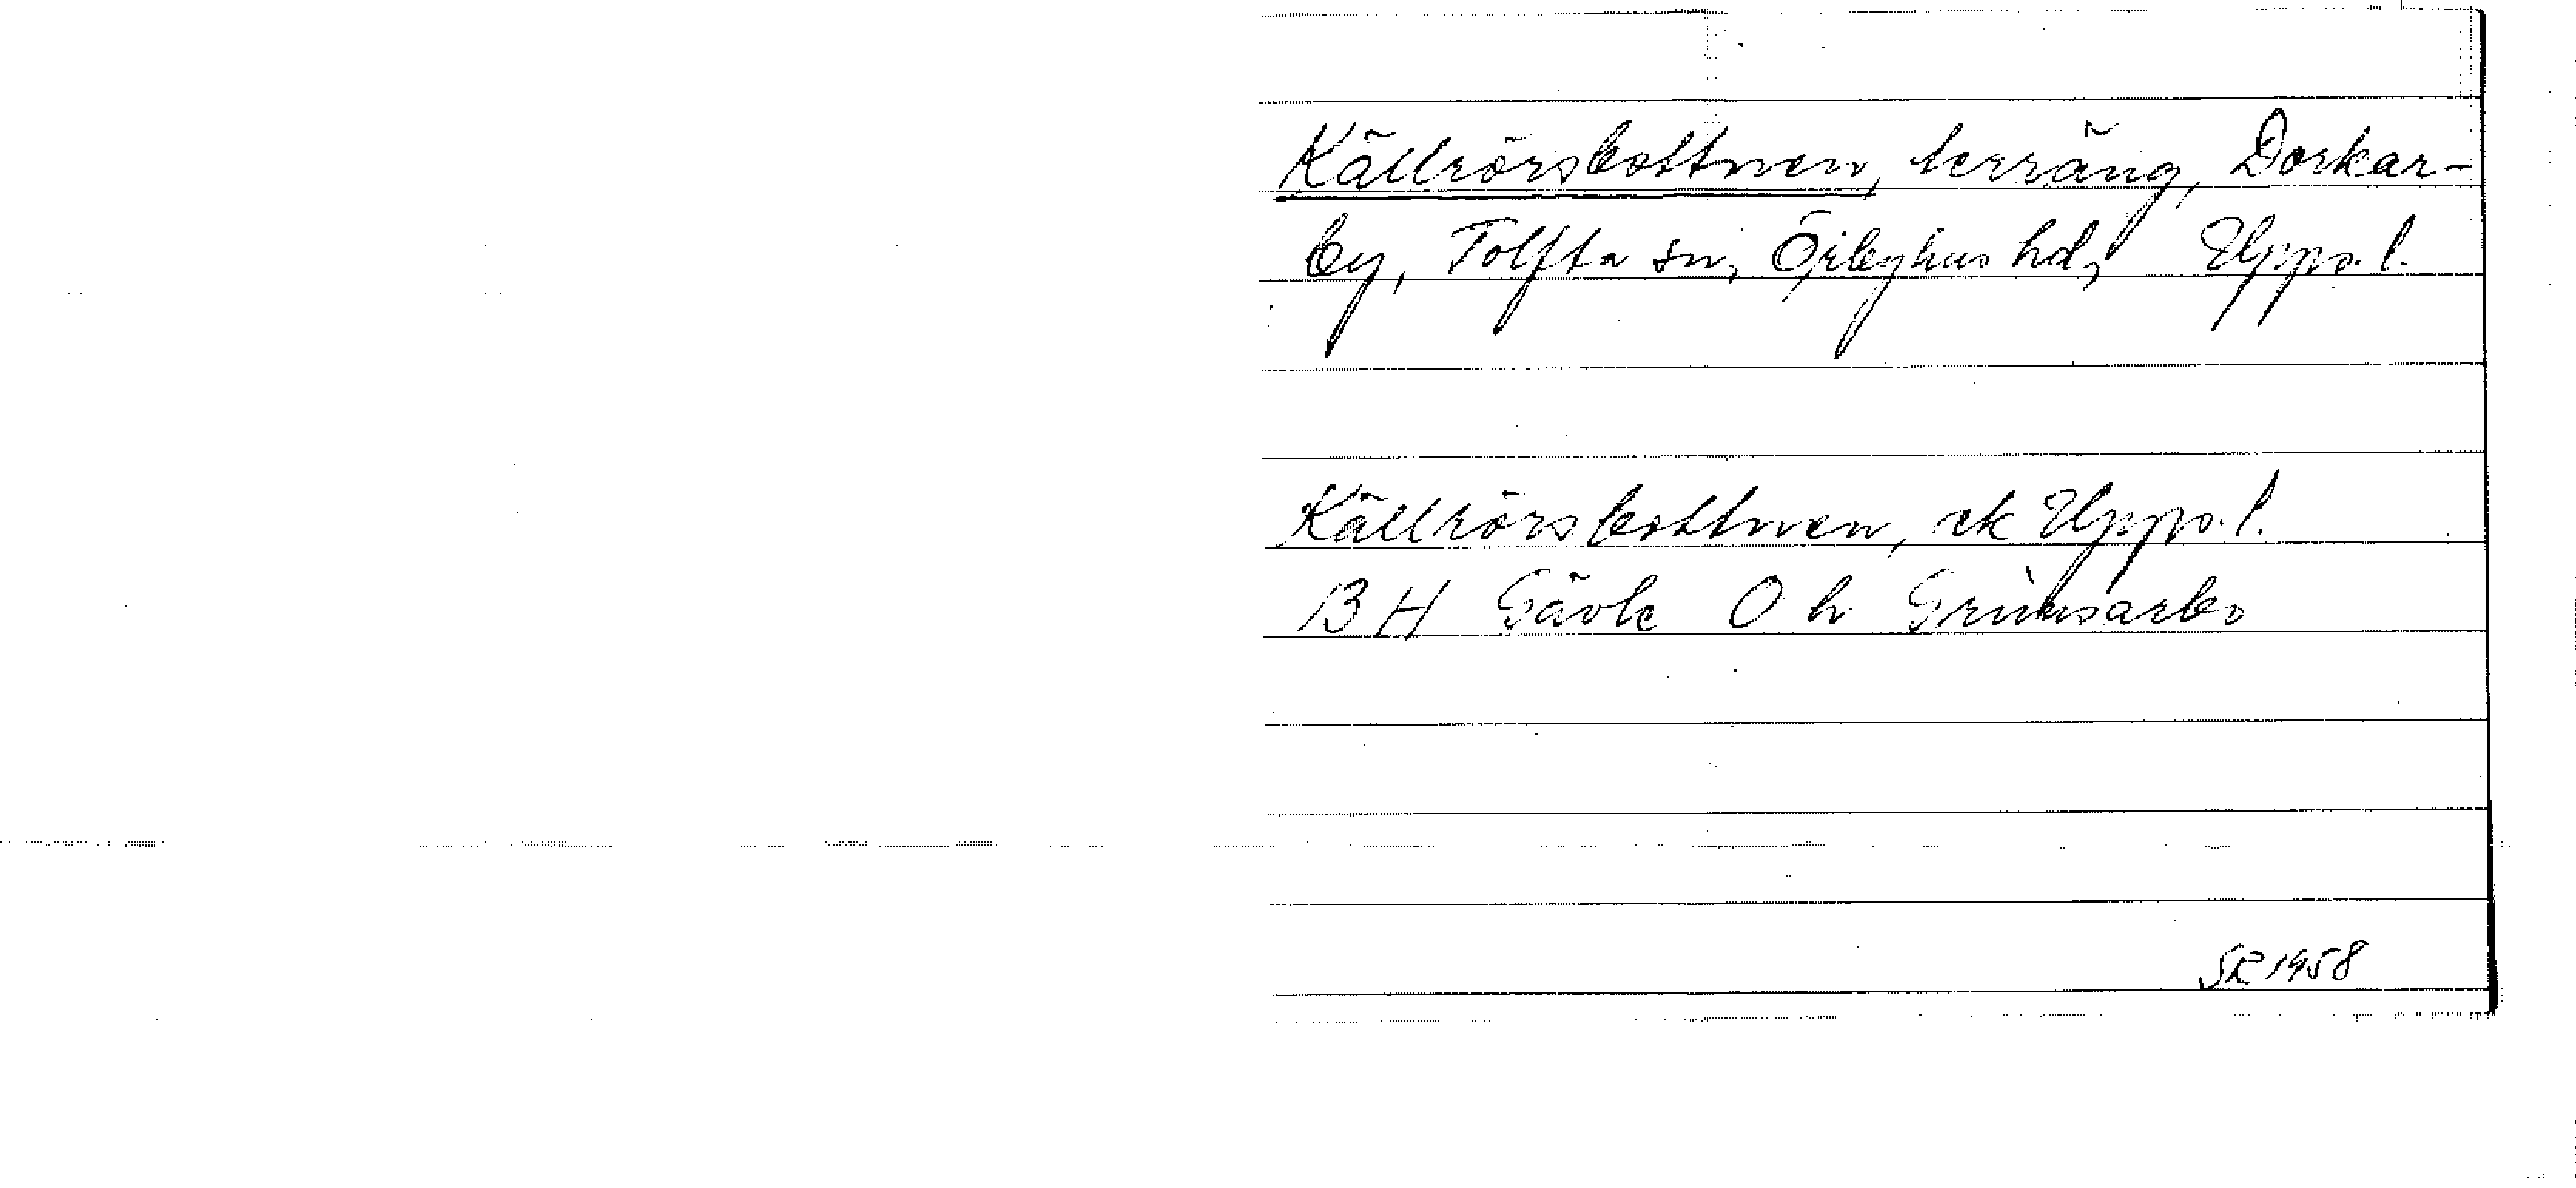 Källrörsbottnen, terräng, Dorkar-
by, Tolfta sn, Örbyhus hd, Upps. l.
Källrörsbottnen, ek Upps. l.
BH Gävle Oh Grimsarbo
SR 1958